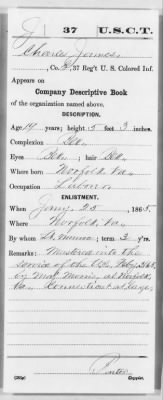 J 37 U.S.C.T.
Charles James
, Co. , 37 Reg't U. S. Colored Inf.
Appears on
Company Descriptive Book
of the organization named above.
DESCRIPTION.
Age 19 years; height 5 feet 3 inches.
Complexion Blk.
Eyes Blk.; hair Blk.
Where born Norfolk, Va.
Occupation Labor
ENLISTMENT.
When Jany. 25, 1865.
Where Norfolk, Va.
By Lt. ; term 3 y'rs.
Remarks: Mustered into the
service of the U.S. Feby.
by Maj. at Norfolk
Va. Connecticut at large.
Porter
Copyist.